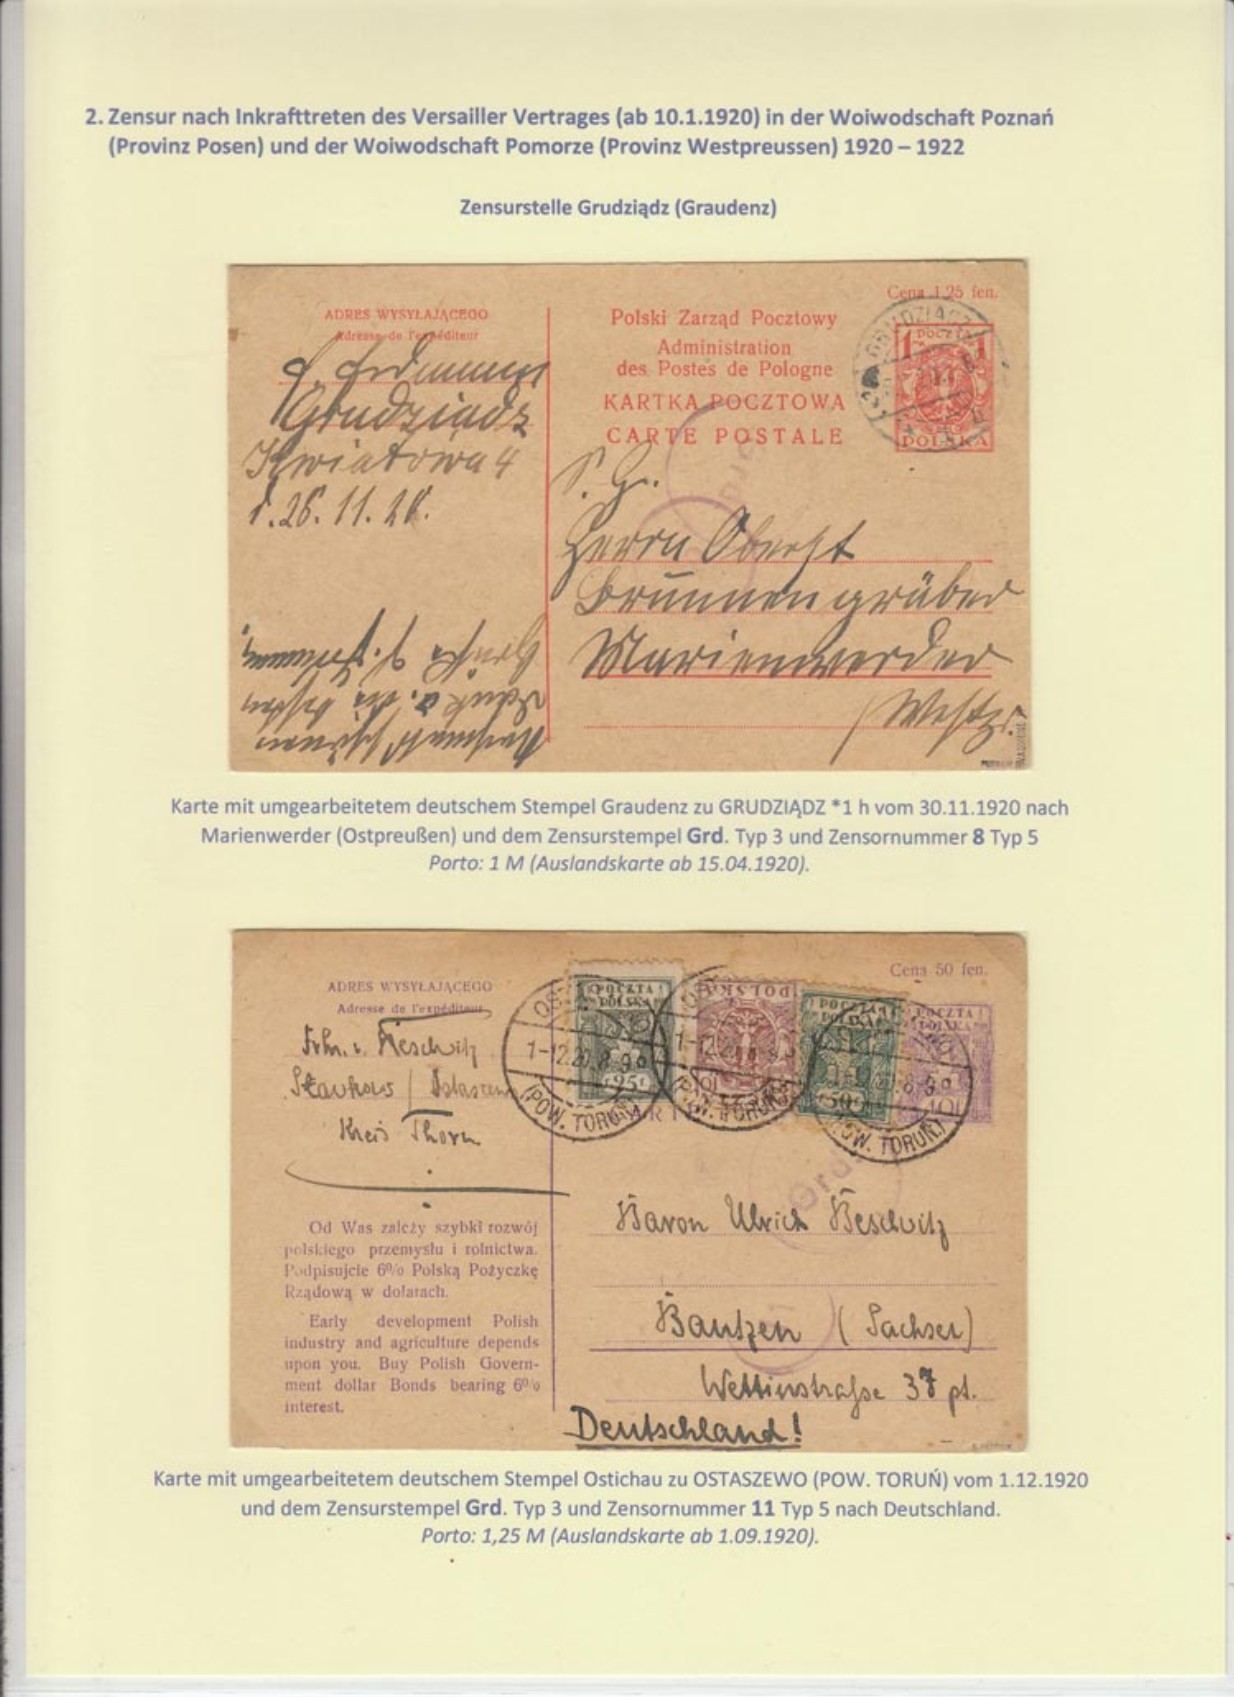 2. Zensur nach Inkrafttreten des Versailler Vertrages (ab 10.1.1920) in der Woiwodschaft Poznań
(Provinz Posen) und der Woiwodschaft Pomorze (Provinz Westpreussen) 1920 – 1922
Zensurstelle Grudziądz (Graudenz)
Cena 1,25 fen.
ADRES WYSYŁAJĄCEGO
Adresse de l'expéditeur
Polski Zarząd Pocztowy
Administration
des Postes de Pologne
KARTKA POCZTOWA
CARTE POSTALE
GRUDZIĄDZ
POCZTA
POLSKA
Grudziądz
Kwiatowa 4
d. 26. 11. 20.
Grd
S. H.
Herrn Oberst
Brunnengräber
Marienwerder
Westpr.
Karte mit umgearbeitetem deutschem Stempel Graudenz zu GRUDZIĄDZ *1 h vom 30.11.1920 nach
Marienwerder (Ostpreußen) und dem Zensurstempel Grd. Typ 3 und Zensornummer 8 Typ 5
Porto: 1 M (Auslandskarte ab 15.04.1920).
Cena 50 fen.
ADRES WYSYŁAJĄCEGO
Adresse de l'expéditeur
POCZTA
POLSKA
25
50
40
1-12.20.8-9
(POW. TORUŃ)
Frhr. v. Beschwitz
Kreis Thorn
Grd.
Od Was zależy szybki rozwój
polskiego przemysłu i rolnictwa.
Podpisujcie 6% Polską Pożyczkę
Rządową w dolarach.
Early development Polish
industry and agriculture depends
upon you. Buy Polish Govern-
ment dollar Bonds bearing 6%
interest.
Baron Ulrich Beschwitz
Bautzen (Sachsen)
Wettinstraße 37 pt.
Deutschland!
Karte mit umgearbeitetem deutschem Stempel Ostichau zu OSTASZEWO (POW. TORUŃ) vom 1.12.1920
und dem Zensurstempel Grd. Typ 3 und Zensornummer 11 Typ 5 nach Deutschland.
Porto: 1,25 M (Auslandskarte ab 1.09.1920).